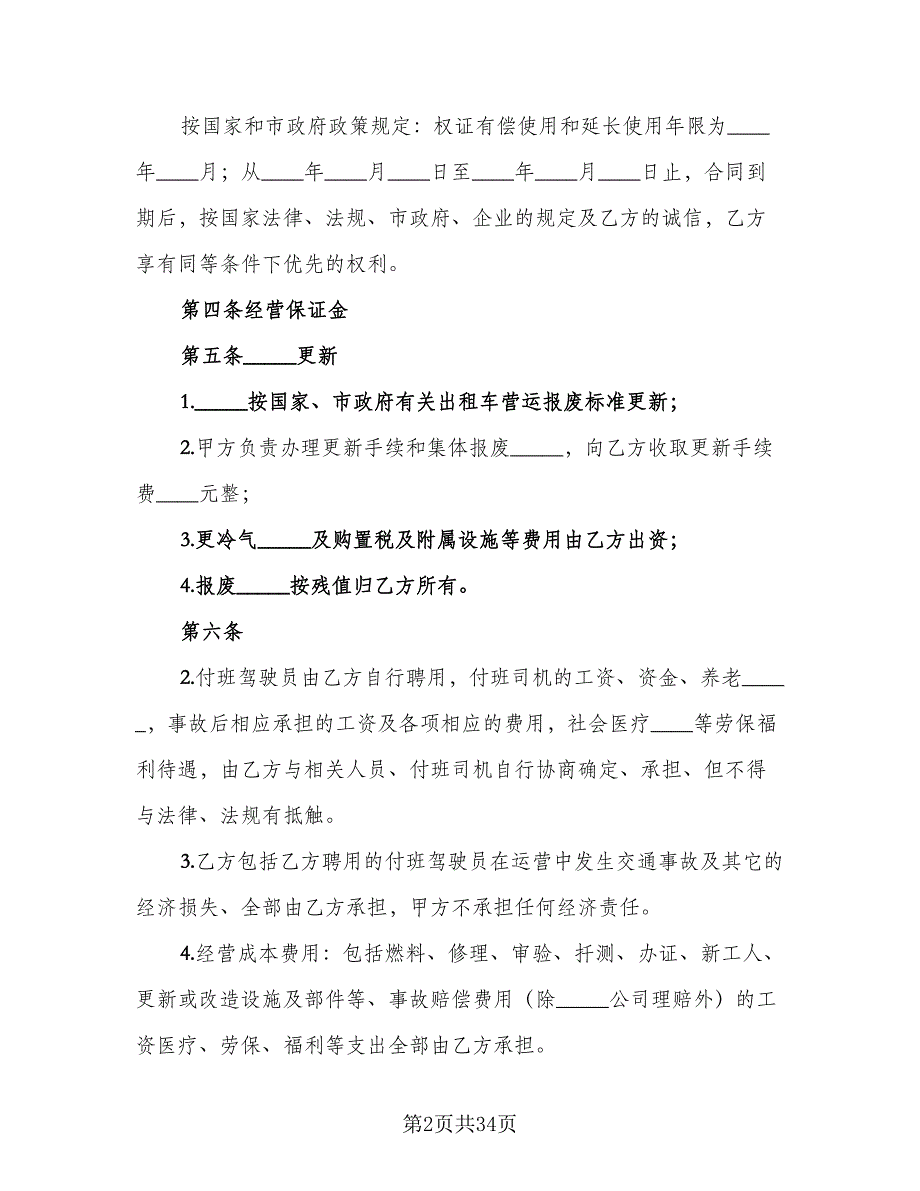 按国家和市政府政策规定：权证有偿使用和延长使用年限为____
年____月；从____年____月____日至____年____月____日止，合同到
期后，按国家法律、法规、市政府、企业的规定及乙方的诚信，乙方
享有同等条件下优先的权利。
第四条经营保证金
第五条_____更新
1._____按国家、市政府有关出租车营运报废标准更新；
2.甲方负责办理更新手续和集体报废_____，向乙方收取更新手续
费____元整；
3.更冷气_____及购置税及附属设施等费用由乙方出资；
4.报废_____按残值归乙方所有。
第六条
2.付班驾驶员由乙方自行聘用，付班司机的工资、资金、养老____
_，事故后相应承担的工资及各项相应的费用，社会医疗____等劳保福
利待遇，由乙方与相关人员、付班司机自行协商确定、承担、但不得
与法律、法规有抵触。
3.乙方包括乙方聘用的付班驾驶员在运营中发生交通事故及其它的
经济损失、全部由乙方承担，甲方不承担任何经济责任。
4.经营成本费用：包括燃料、修理、审验、扦测、办证、新工人、
更新或改造设施及部件等、事故赔偿费用（除_____公司理赔外）的工
资医疗、劳保、福利等支出全部由乙方承担。
第2页共34页